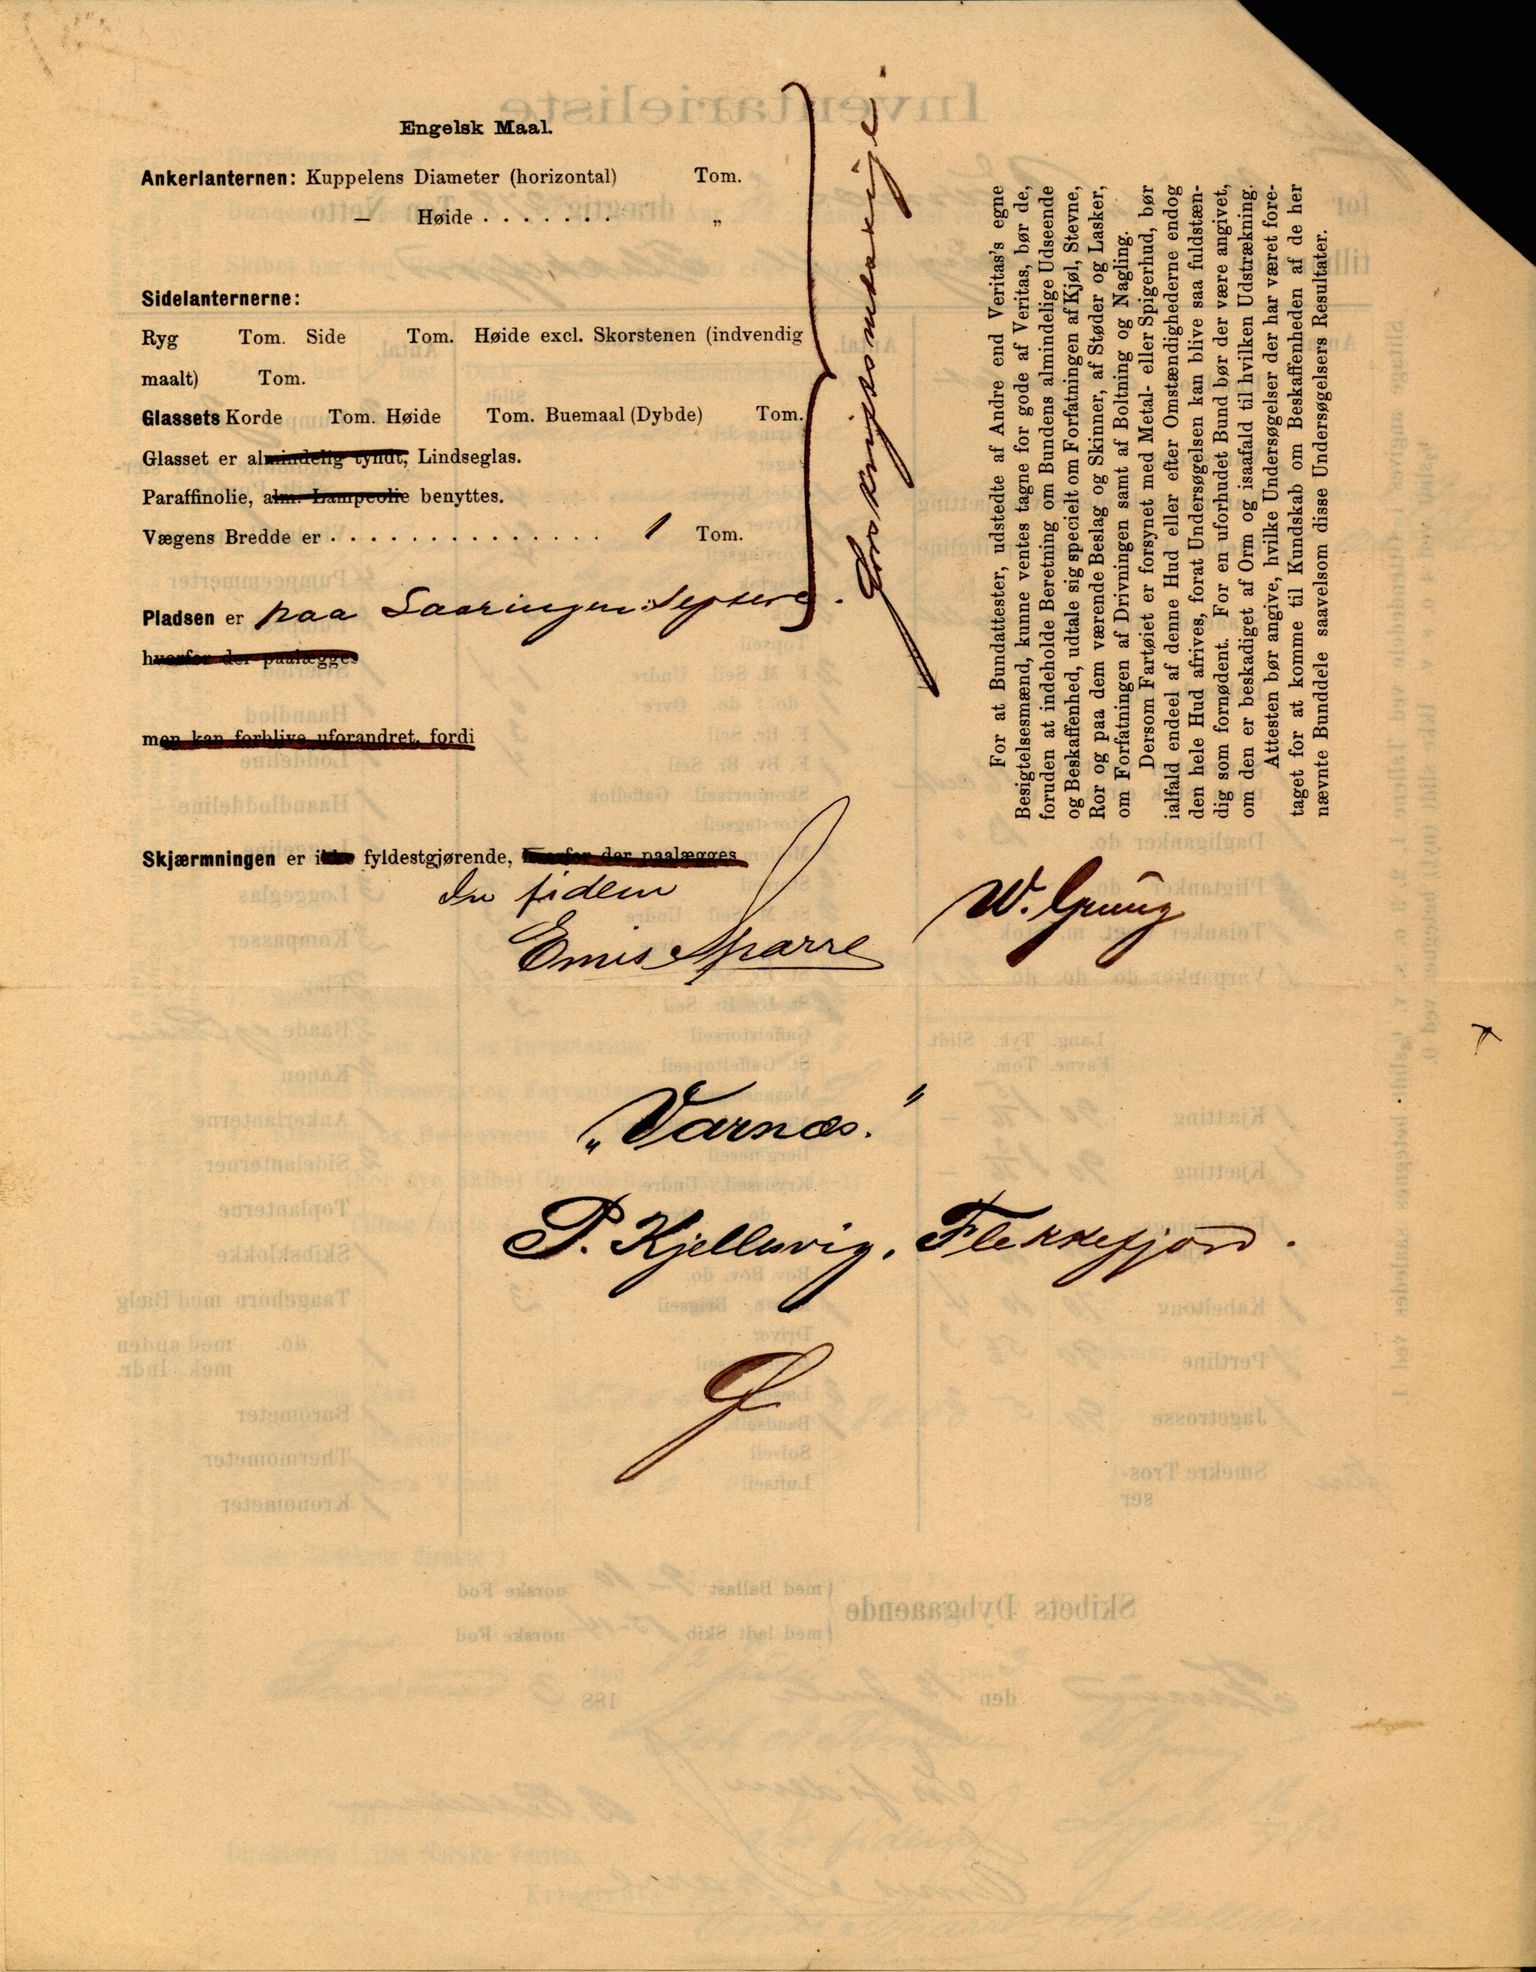 Engelsk Maal.
Ankerlanternen: Kuppelens Diameter (horizontal) Tom.
— Høide . . . . . . . „
Sidelanternerne:
Ryg Tom. Side Tom. Høide excl. Skorstenen (indvendig
maalt) Tom.
Glassets Korde Tom. Høide Tom. Buemaal (Dybde) Tom.
Glasset er almindelig tyndt, Lindseglas.
Paraffinolie, alm. Lampeolie benyttes.
Vægens Bredde er . . . . . . . . . . . . . . 1 Tom.
Pladsen er paa
hvorfor der paalægges
men kan forblive uforandret, fordi
Skjærmningen er ikke fyldestgjørende, hvorfor der paalægges
In fidem
Sparre
W. Grung
Forskriftsmæssige
For at Bundattester, udstedte af Andre end Veritas's egne
Besigtelsesmænd, kunne ventes tagne for gode af Veritas, bør de,
foruden at indeholde Beretning om Bundens almindelige Udseende
og Beskaffenhed, udtale sig specielt om Forfatningen af Kjøl, Stevne,
Ror og paa dem værende Beslag og Skinner, af Støder og Lasker,
om Forfatningen af Drivningen samt af Boltning og Nagling.
Dersom Fartøiet er forsynet med Metal- eller Spigerhud, bør
ialfald endeel af denne Hud eller efter Omstændighederne endog
den hele Hud afrives, forat Undersøgelsen kan blive saa fuldstæn-
dig som fornødent. For en uforhudet Bund bør der være angivet,
om den er beskadiget af Orm og isaafald til hvilken Udstrækning.
Attesten bør angive, hvilke Undersøgelser der har været fore-
taget for at komme til Kundskab om Beskaffenheden af de her
nævnte Bunddele saavelsom disse Undersøgelsers Resultater.
„Varnæs."
P. Kjellesvig, Flekkefjord.